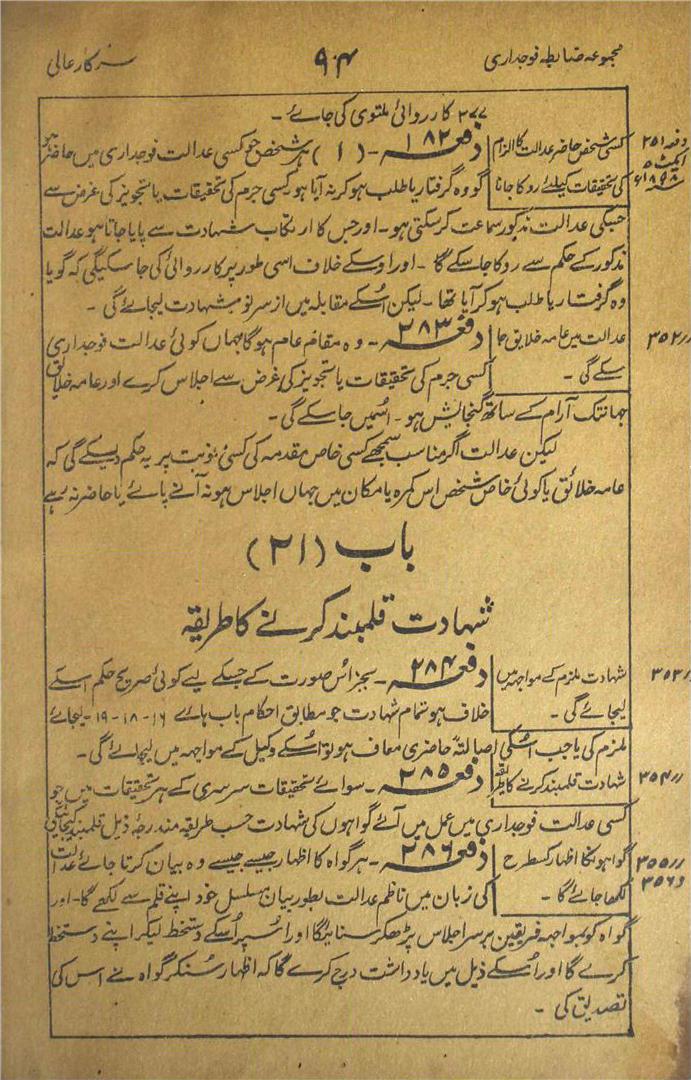 مجموعہ ضابطہ فوجداری
۹۴
سرکار عالی
۲۷۷ کارروائی ملتوی کی جائے۔
دفعہ ۲۵۱ ایکٹ ۵ ۱۸۹۸ء
کسی شخص حاضر عدالت کا الزام
کی تحقیقات کیلئے روکا جانا
دفعہ ۲۸۲۔ (۱) ہر شخص جو کسی عدالت فوجداری میں حاضر ہو
گو وہ گرفتار یا طلب ہو کر نہ آیا ہو کسی جرم کی تحقیقات یا تجویز کی غرض سے
جسکی عدالت مذکور سماعت کر سکتی ہو۔ اور جس کا ارتکاب شہادت سے پایا جاتا ہو عدالت
مذکور کے حکم سے روکا جاسکے گا۔ اور اوسکے خلاف اسی طور پر کارروائی کی جا سکیگی کہ گویا
وہ گرفتار یا طلب ہو کر آیا تھا۔ لیکن اُسکے مقابلہ میں از سر نو شہادت لیجائے گی۔
〃 ۳۵۲
عدالت میں عامہ خلایق جا
سکے گی۔
دفعہ ۲۸۳۔ وہ مقام عام ہوگا جہاں کوئی عدالت فوجداری
کسی جرم کی تحقیقات یا تجویز کی غرض سے اجلاس کرے اور عامہ خلائق
جہانتک آرام کے ساتھ گنجائش ہو۔ اسمیں جاسکے گی۔
لیکن عدالت اگر مناسب سمجھے کسی خاص مقدمہ کی کسی نوبت پر یہ حکم دیسکے گی کہ
عامہ خلائق یا کوئی خاص شخص اس کمرہ یا مکان میں جہاں اجلاس ہو نہ آنے پائے یا حاضر نہ رہے
باب (۲۱)
شہادت قلمبند کرنے کا طریقہ
〃 ۳۵۳
شہادت ملزم کے مواجہہ میں
لیجائے گی۔
دفعہ ۲۸۴۔ بجز اس صورت کے جسکے لیے کوئی صریح حکم اسکے
خلاف ہو تمام شہادت جو مطابق احکام باب ہائے ۱۶-۱۸-۱۹۔ لیجائے
ملزم کی یا جب اُسکی اصالتہً حاضری معاف ہو تو اُسکے وکیل کے مواجہہ میں لیجائے گی۔
〃 ۳۵۴
شہادت قلمبند کرنے کا طریقہ
دفعہ ۲۸۵۔ سوائے تحقیقات سرسری کے ہر تحقیقات میں جو
کسی عدالت فوجداری میں عمل میں آئے گواہوں کی شہادت حسب طریقہ مندرجہ ذیل قلمبند کیجائیگی
〃 ۳۵۵ و ۳۵۶
گواہونکا اظہار کسطرح
لکھا جائے گا۔
دفعہ ۲۸۶۔ ہر گواہ کا اظہار جیسے جیسے وہ بیان کرتا جائے عدالت
کی زبان میں ناظم عدالت بطور بیان مسلسل خود اپنے قلم سے لکھے گا۔ اور
گواہ کو بمواجہہ فریقین بر سر اجلاس پڑھکر سنائیگا اور اُسپر اُسکے دستخط لیکر اپنے دستخط
کرے گا اور اُسکے ذیل میں یادداشت درج کرے گا کہ اظہار سُنکر گواہ نے اس کی
تصدیق کی۔